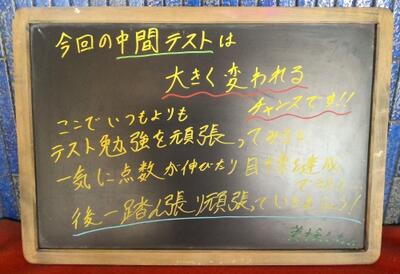 今回の中間テストは
大きく変われる
チャンスです!!
ここでいつもよりも
テスト勉強を頑張ってみると
一気に点数が伸びたり目標を達成
できたり…
後一踏ん張り頑張っていきましょう!